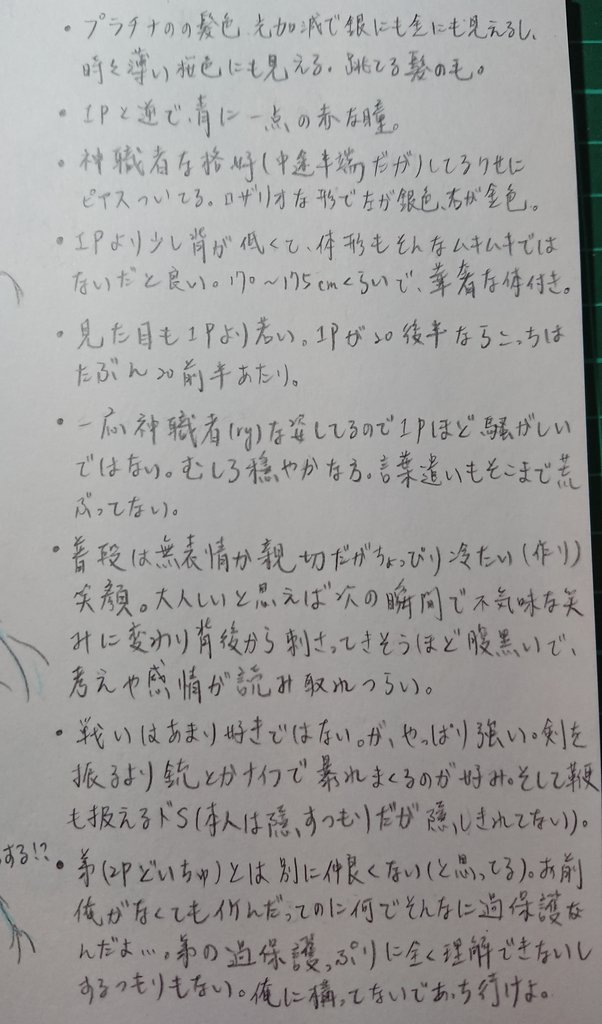 ・プラチナのの髪色 光加減で銀にも金にも見えるし、
時々薄い桜色にも見える。跳ねてる髪の毛。
・1Pと逆で、青に一点の赤な瞳。
・神職者な格好(中途半端だが)してるクセに
ピアスついてる。ロザリオな形で左が銀色、右が金色。
・1Pより少し背が低くて、体形もそんなムキムキでは
ないだと良い。170～175cmくらいで、華奢な体付き。
・見た目も1Pより若い。1Pが20後半ならこっちは
たぶん20前半あたり。
・一応神職者(ry)な姿してるので1Pほど騒がしい
ではない。むしろ穏やかな方。言葉遣いもそこまで荒
ぶってない。
・普段は無表情か親切だがちょっぴり冷たい(作り)
笑顔。大人しいと思えば次の瞬間で不気味な笑
みに変わり背後から刺さってきそうほど腹黒いで、
考えや感情が読み取れつらい。
・戦いはあまり好きではない。が、やっぱり強い。剣を
振るより銃とかナイフで暴れまくるのが好み。そして鞭
も扱えるドS(本人は隠すつもりだが隠しきれてない)。
する!?
・弟(2Pどいちゅ)とは別に仲良くない(と思ってる)。お前
俺がなくても行くんだってのに何でそんなに過保護な
んだよ…。弟の過保護っぷりに全く理解できないし
するつもりもない。俺に構ってないであっち行けよ。